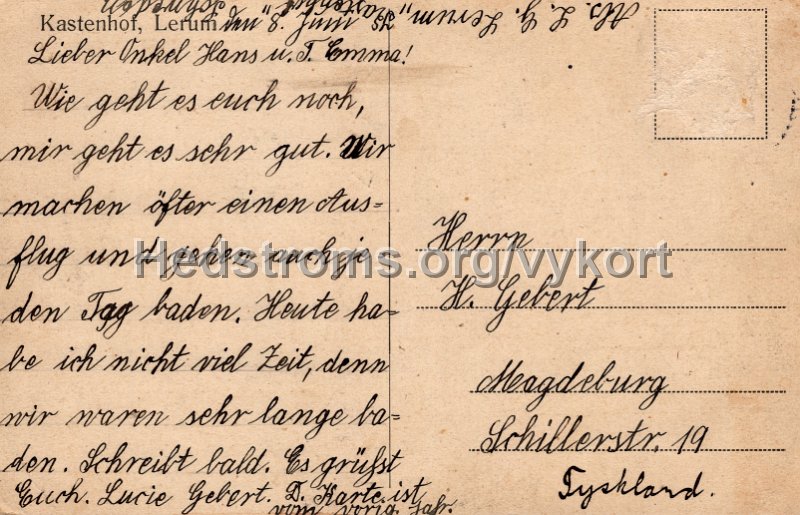 Kastenhof, Lerum den 8. Juni
Lieber Onkel Hans u. T. Emma!
Wie geht es euch noch,
mir geht es sehr gut. Wir
machen öfter einen Aus=
flug und gehen auch je
den Tag baden. Heute ha=
be ich nicht viel Zeit, denn
wir waren sehr lange ba=
den. Schreibt bald. Es grüsst
Euch. Lucie Gebert. D. Karte ist
vom vorig. Jahr.
Herrn
H. Gebert
Magdeburg
Schillerstr. 19
Tyskland.
Hedstroms.org/vykort